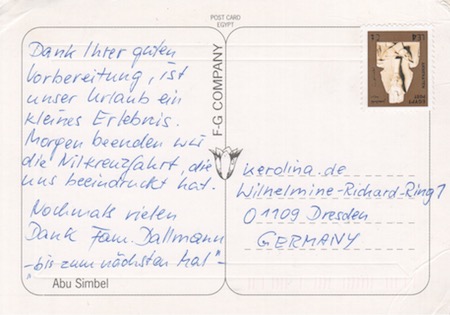 POST CARD
EGYPT
Dank Ihrer guten
Vorbereitung, ist
unser Urlaub ein
kleines Erlebnis.
Morgen beenden wir
die Nilkreuzfahrt, die
uns beeindruckt hat.
Nochmals vielen
Dank Fam. Dallmann
-bis zum nächsten Mal"-
Abu Simbel
F-G COMPANY
EGYPT
POST
nerolina.de
Wilhelmine-Richard-Ring 7
01109 Dresden
GERMANY